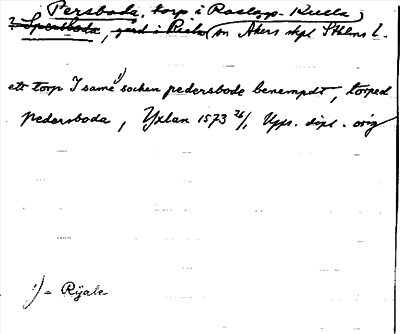 Persboda, torp i Roslags-Kulla
? Spersboda, gård i Riala sn Åkers skpl Sthlms l.
ett torp I samē ¹) socken pedersbode benempdt, torped
pedersboda, Yxlan 1573 26/1 Upps. dipl. orig
¹) = Ryale